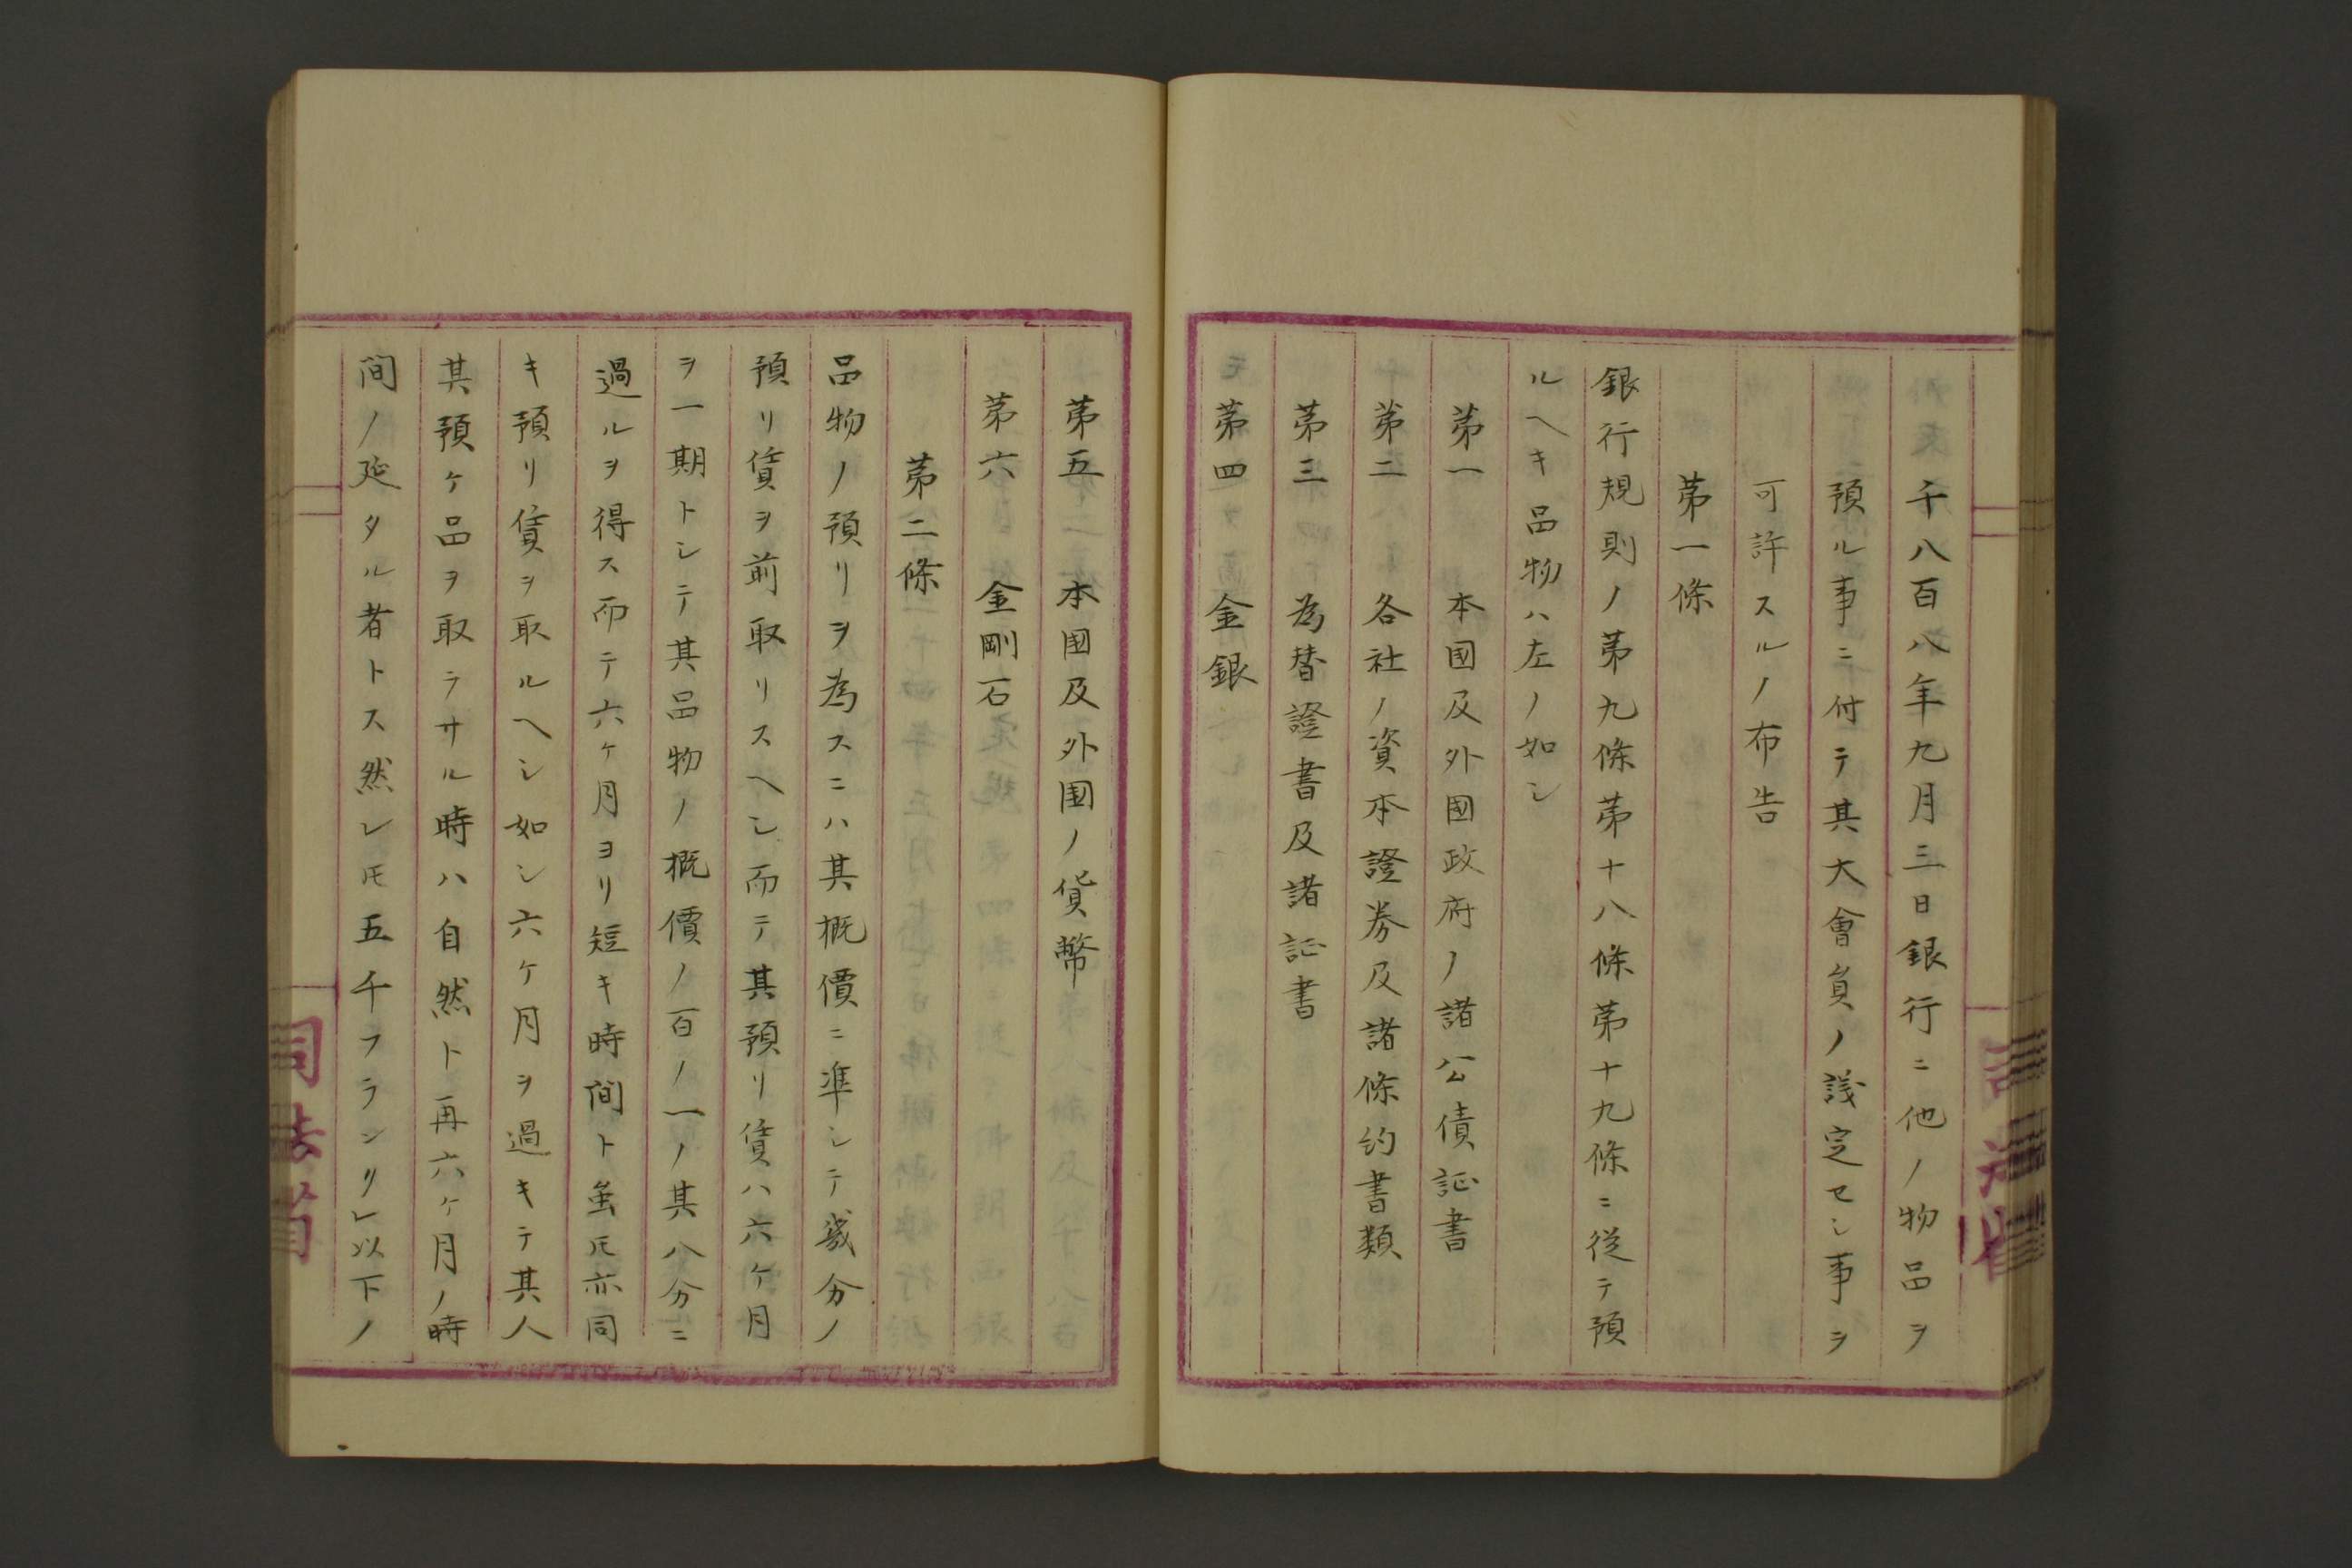 千八百八年九月三日銀行ニ他ノ物品ヲ
預ル事ニ付テ其大會負ノ議定セシ事ヲ
可許スルノ布告
第一條
銀行規則ノ第九條第十八條第十九條ニ從テ預
ルヘキ品物ハ左ノ如シ
第一 本國及外國政府ノ諸公債証書
第二 各社ノ資本證券及諸條約書類
第三 為替證書及諸証書
第四 金銀
第五 本国及外国ノ貨幣
第六 金剛石
第二條
品物ノ預リヲ為スニハ其概價ニ準シテ幾分ノ
預リ賃ヲ前取リスヘシ而テ其預リ賃ハ六ケ月
ヲ一期トシテ其品物ノ概價ノ百ノ一ノ其八分ニ
過ルヲ得ス而テ六ケ月ヨリ短キ時間ト雖𪜈亦同
キ預リ賃ヲ取ルヘシ如シ六ケ月ヲ過キテ其人
其預ケ品ヲ取ラサル時ハ自然ト再六ケ月ノ時
間ノ延タル者トス然レ𪜈五千フランリレ以下ノ
司法省